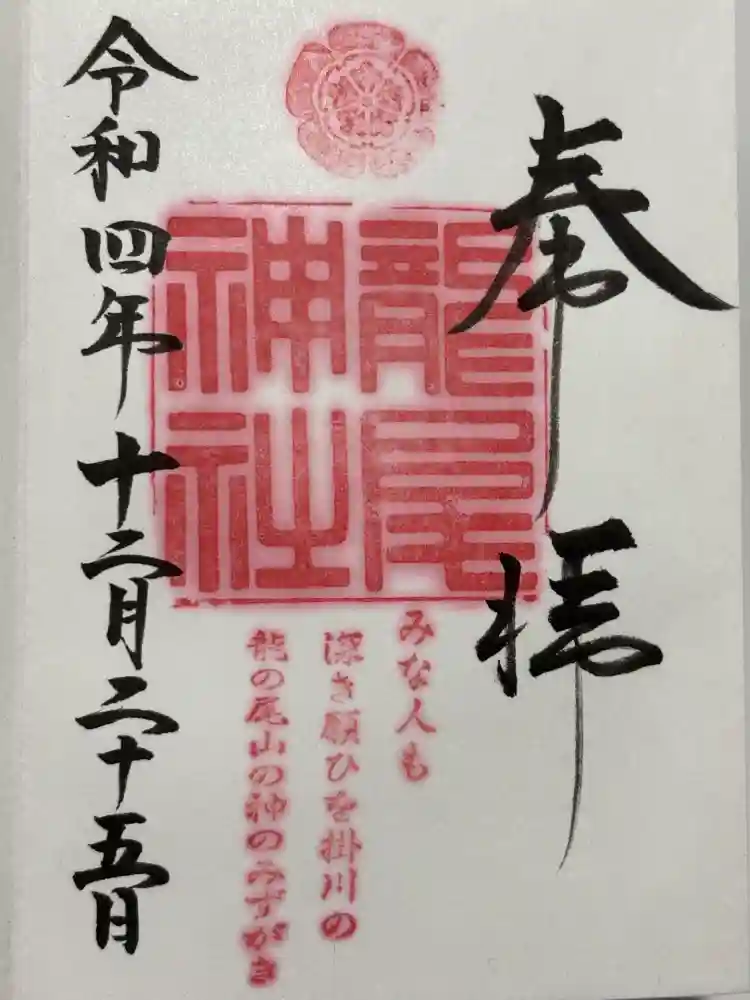 奉拝
龍尾神社
みな人も
深き願ひを掛川の
龍の尾山の神のみずがき
令和四年十二月二十五日